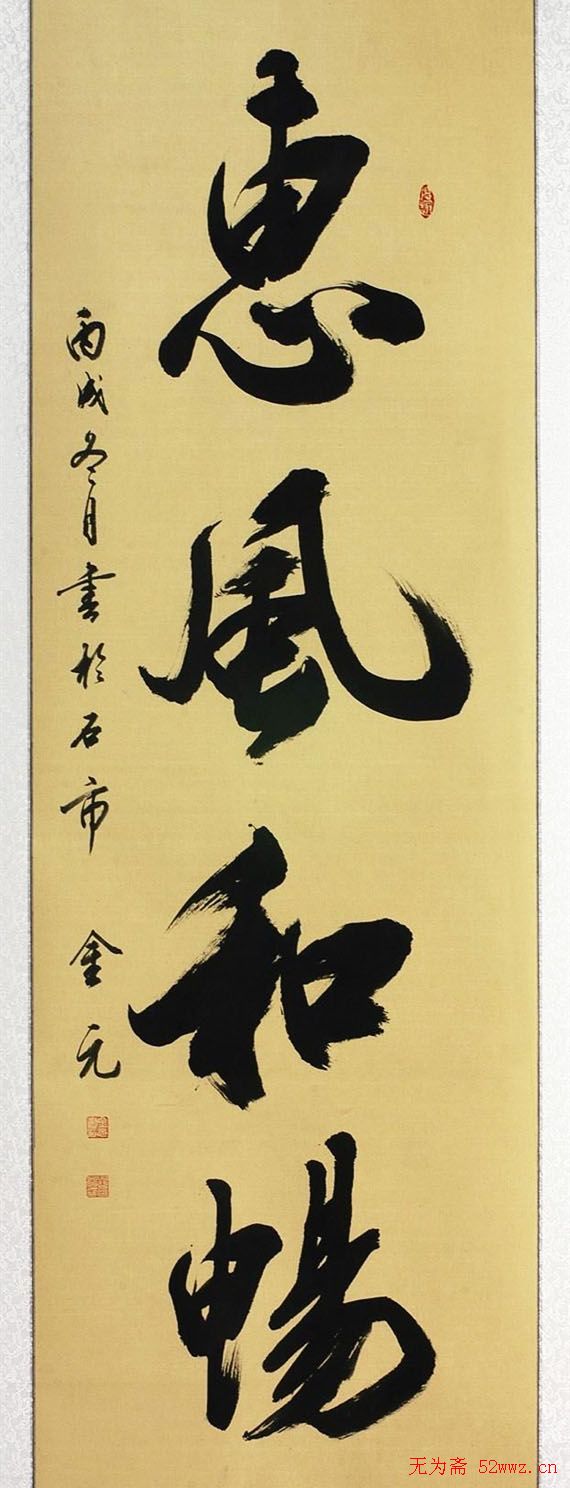 惠風和暢
丙戌冬月書於石市
金元
无为斋 52wwz.cn